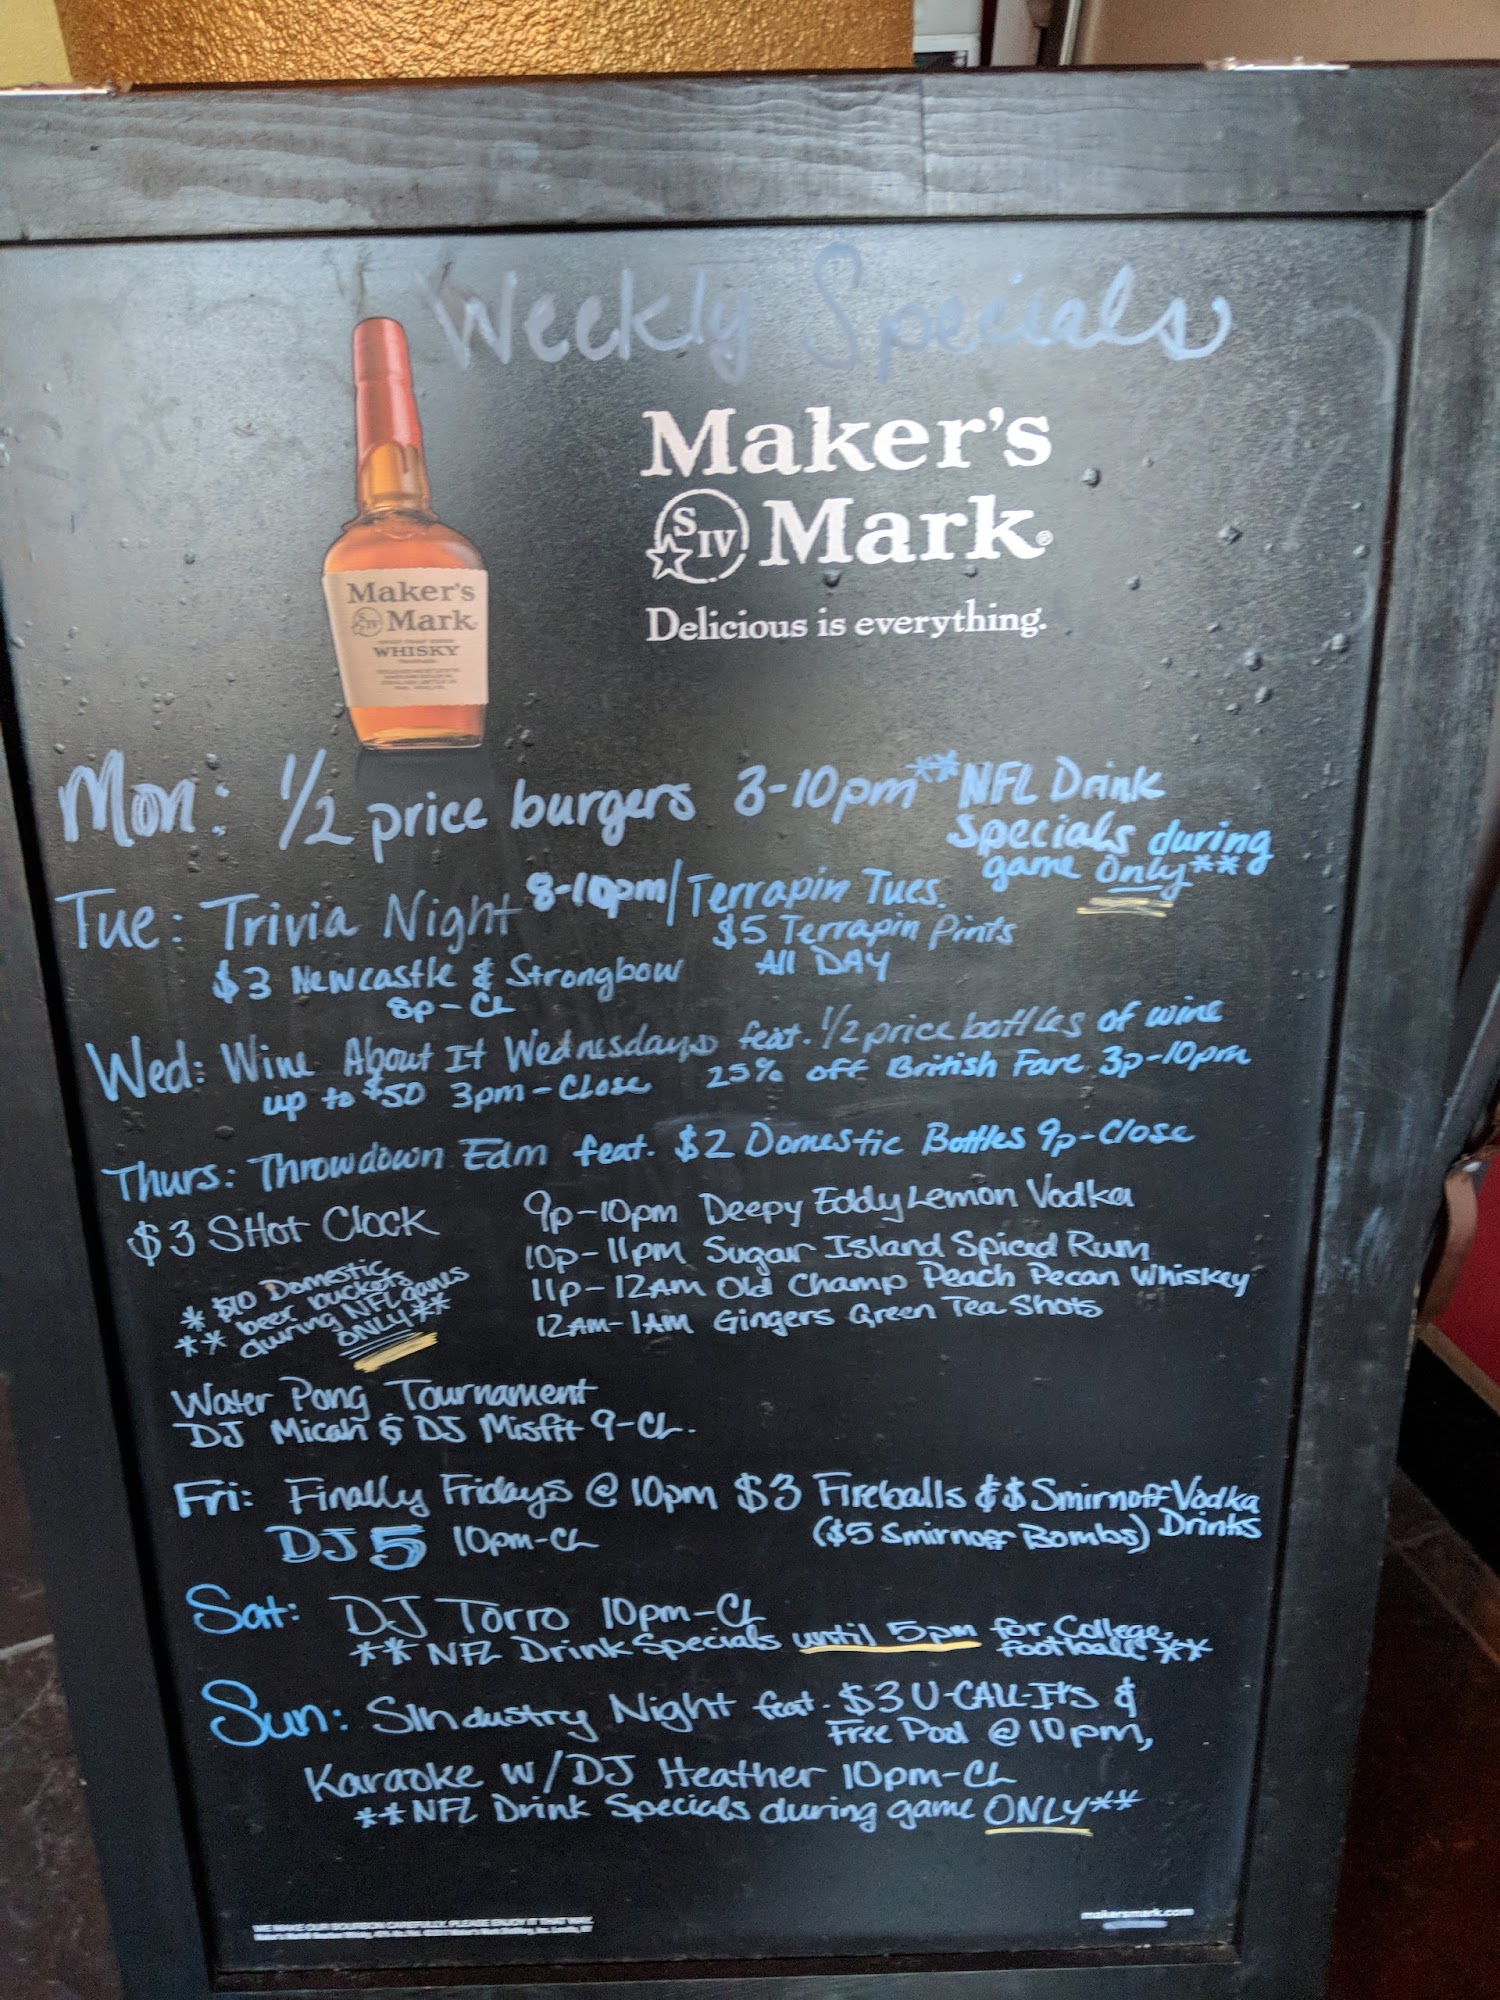 Weekly Specials
Maker's
S IV Mark®
Delicious is everything.
Maker's
SIV Mark
WHISKY
Mon: 1/2 price burgers 3-10pm **NFL Drink
Specials during
game Only**
Tue: Trivia Night 8-10pm/Terrapin Tues.
$5 Terrapin Pints
All DAY
$3 Newcastle & Strongbow
8p-CL
Wed: Wine About It Wednesdays feat. 1/2 price bottles of wine
up to $50 3pm-Close 25% off British Fare 3p-10pm
Thurs: Throwdown Edm feat. $2 Domestic Bottles 9p-Close
$3 SHot Clock
9p-10pm Deepy Eddy Lemon Vodka
10p-11pm Sugar Island Spiced Rum
11p-12AM Old Champ Peach Pecan Whiskey
12AM-1AM Gingers Green Tea Shots
* $10 Domestic
** beer buckets
during NFL games
ONLY**
Water Pong Tournament
DJ Micah & DJ Misfit 9-CL.
Fri: Finally Fridays @ 10pm $3 Fireballs & $ Smirnoff Vodka
Drinks
($5 Smirnoff Bombs)
DJ 5 10pm-CL
Sat: DJ Torro 10pm-CL
**NFL Drink Specials until 5pm for College
football**
Sun: SIndustry Night feat. $3 U-CALL-ITs &
Free Pool @ 10pm,
Karaoke w/DJ Heather 10pm-CL
**NFL Drink Specials during game ONLY**
WE MAKE OUR BOURBON CAREFULLY. PLEASE ENJOY IT THAT WAY.
makersmark.com